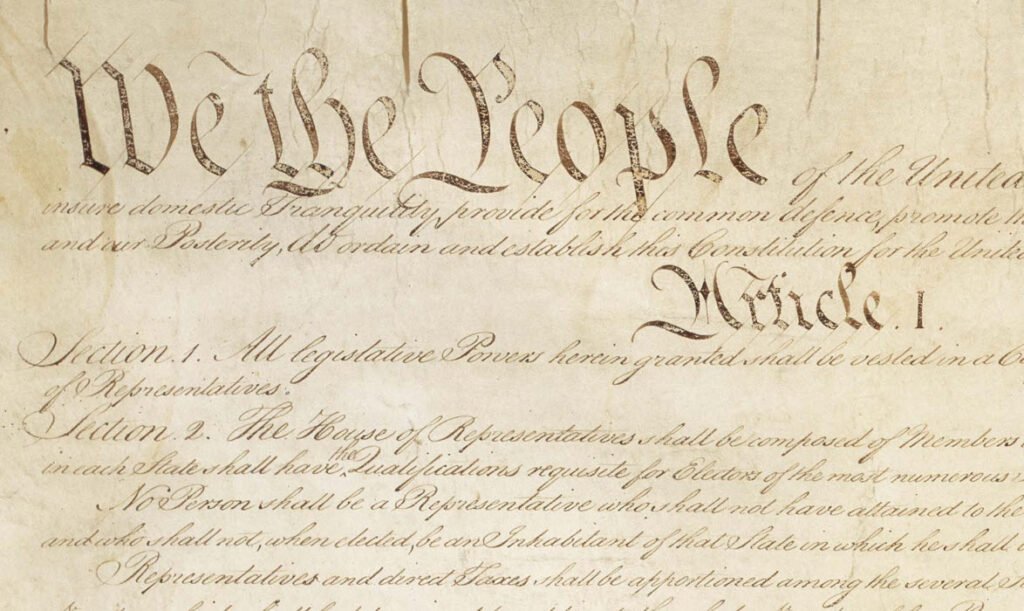 We the People of the United
insure domestic Tranquility, provide for the common defence, promote
and our Posterity, do ordain and establish this Constitution for the United
Article. I.
Section. 1. All legislative Powers herein granted shall be vested in a
of Representatives.
Section. 2. The House of Representatives shall be composed of Members
in each State shall have the Qualifications requisite for Electors of the most numerous
No Person shall be a Representative who shall not have attained to the
and who shall not, when elected, be an Inhabitant of that State in which he shall
Representatives and direct Taxes shall be apportioned among the several